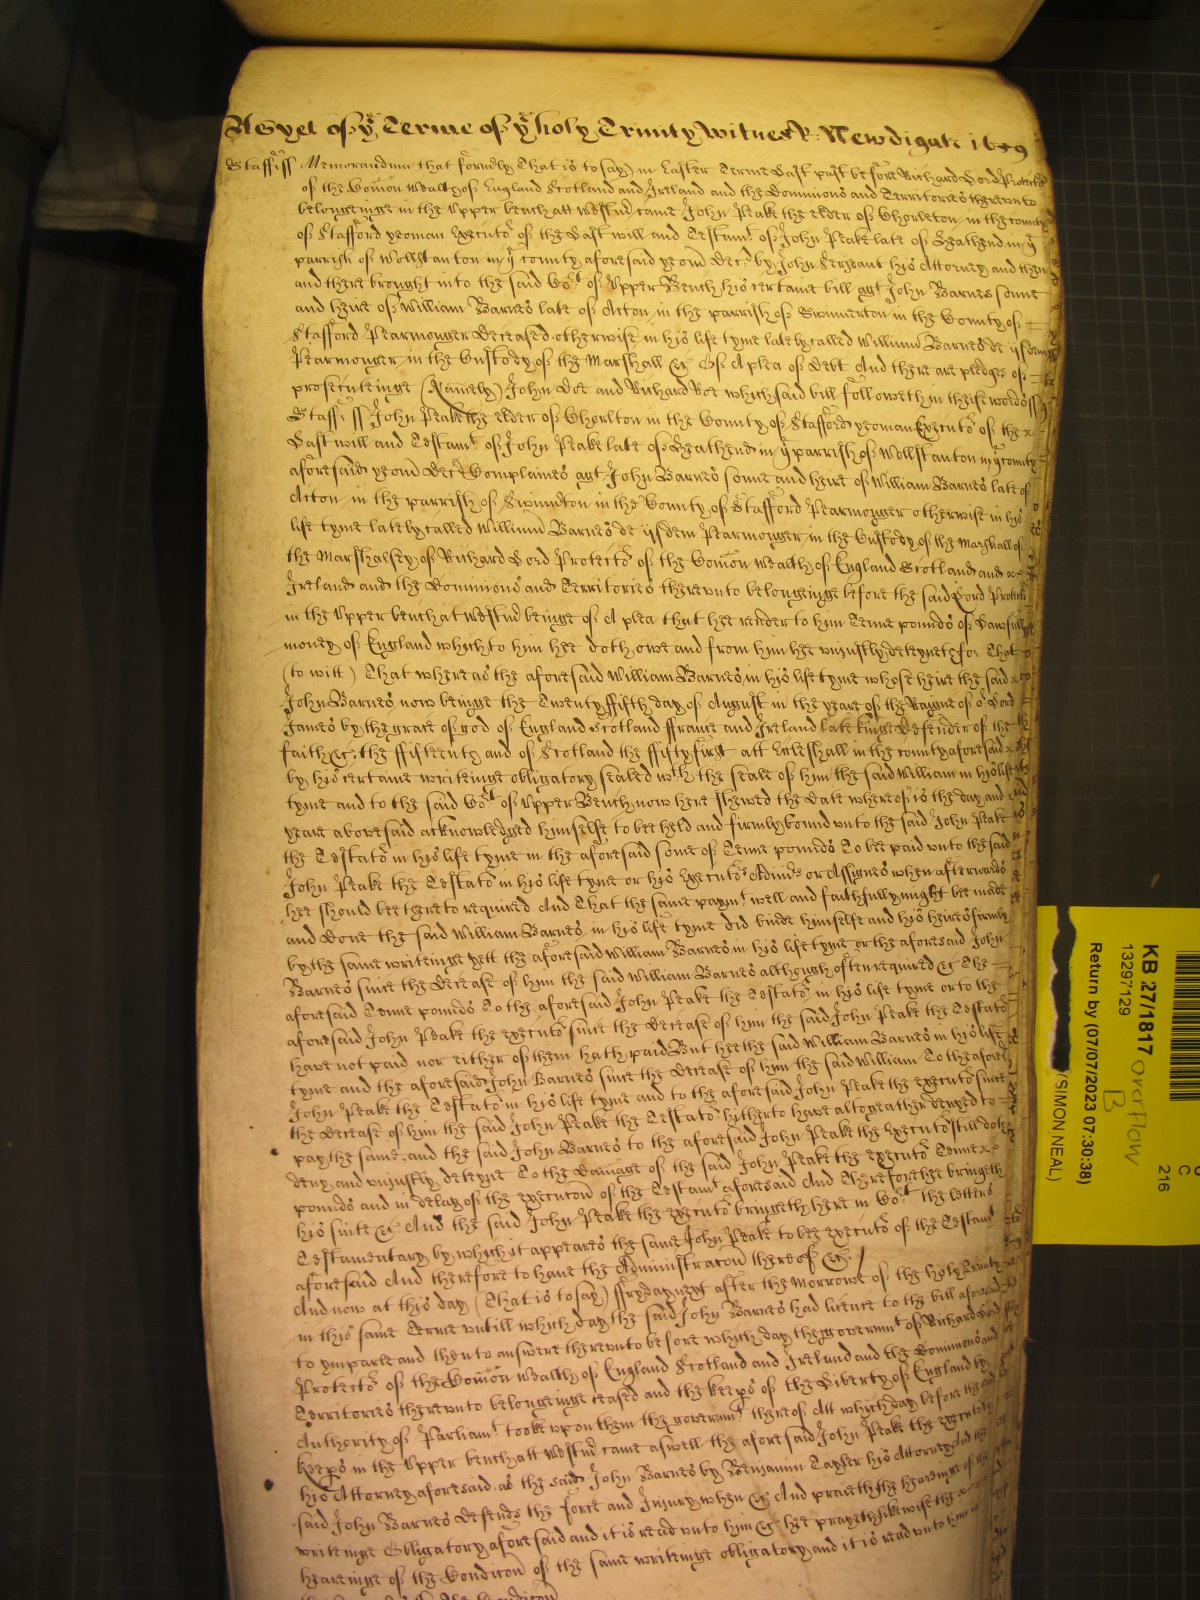 As yet of ye Terme of ye holy Trinity Witness R: Newdigate 1659
Staff: ss Memorandum that formerly (That is to say) in Easter Terme last past before Richard Lord Protector
of the Comon wealth of England Scotland and Ireland and the Dominions and Territories thereunto
belongeinge in the Upper bench att Westmr came John Peake the elder of Chorleton in the county
of Stafford yeoman Executor of the last will and Testamt of John Peake late of in ye
parrish of Wollstanton in ye county aforesaid yeom Decd by John Sergeant his Attorney and then
and there brought into the said Cort of Upper Bench his certaine bill agt John Barnes sonne
and heire of William Barnes late of Acton in the parrish of Swinnerton in the County of
Stafford Pearmonger Deceased otherwise in his life tyme lately called Willium Barnes de iisdem
Pearmonger in the Custody of the Marshall &c Of A plea of Debt And there are pledges of
prosecuteinge (Namely) John Doe and Richard Roe which said bill followeth in theise words ss
Staff: ss John Peake the elder of Chorlton in the County of Stafford yeoman Executor of the
Last will and Testamt of John Peake late of in ye parrish of Wollstanton in ye county
aforesaid yeom Decd Complaines agt John Barnes sonne and heire of William Barnes late of
Acton in the parrish of in the County of Stafford Pearmonger otherwise in his
life tyme lately called Willium Barnes de iisdem Pearmonger in the Custody of the Marshall of
the Marshalsey of Richard Lord Protector of the Comon wealth of England Scotland and
Ireland and the Dominions and Territories thereunto belongeinge before the said Lord Protector
in the Upper bench at Westmr beinge of A plea that hee render to him Tenne pounds of Lawfull
money of England which to him hee doth owe and from him hee uniustly deteynes for That
(to witt) That whereas the aforesaid William Barnes in his life tyme whose heire the said
John Barnes now beinge the Twenty ffifth day of August in the yeare of the Raigne of or Lord
James by the grace of god of England Scotland ffrance and Ireland late kinge Defender of the
faith &c. the ffifteenth and of Scotland the ffifty first att in the county aforesaid
by his certaine writeinge obligatory sealed wth the seale of him the said William in his life
tyme and to the said Cort of Upper Bench now here shewed the Date whereof is the day and
yeare abovesaid acknowledged himselfe to bee held and firmly bound unto the said John Peake
the Testator in his life tyme in the aforesaid some of Tenne pounds To bee paid unto the said
John Peake the Testator in his life tyme or his Executors Admrs or Assignes when afterwards
hee should bee thereto required And That the same paymt well and faithfully might bee made
and Done the said William Barnes in his life tyme did binde himselfe and his heires firmly
by the same writeinge yett the aforesaid William Barnes in his life tyme or the aforesaid John
Barnes since the Decease of him the said William Barnes although often required &c The
aforesaid Tenne pounds To the aforesaid John Peake the Testator in his life tyme or to the
aforesaid John Peake the executor since the decease of him the said John Peake the Testator
have not paid nor either of them hath paid But hee the said William Barnes in his life
tyme and the aforesaid John Barnes since the Decease of him the said William To the aforesd
John Peake the Testator in his life tyme and to the aforesaid John Peake the executor since
the Decease of him the said John Peake the Testator hitherto have altogeather denyed to
pay the same, and the said John Barnes to the aforesaid John Peake the Executor still doth
deny and uniustly deteyne To the Damage of the said John Peake the executor Tenne
pounds and in delay of the execucon of the Testamt aforesaid And Therefore hee bringeth
his suite &c And the said John Peake the executor bringeth here in Cort the letters
Testamentary by which it appeares the same John Peake to bee executor of the Testamt
aforesaid And therefore to have the Administracon thereof &c. /
And now at this day (That is to say) ffryday next after the Morrowe of the holy Trinity
in this same Terme untill which day the said John Barnes had licence to the bill aforesaid
to imparle and then to answere thereunto before which day the governmt of Richard Lord
Protector of the Comon wealth of England Scotland and Ireland and the Dominions and
Territories thereunto belongeinge ceased and the keeprs of the Liberty of England by
Authority of Parliamt tooke upon them the governmt thereof Att which day before the said
Keeprs in the Upper bench att Westmr came aswell the aforesaid John Peake the executor by
his Attorney aforesaid as the said John Barnes by Benjamin Tayler his Attorney And the
said John Barnes Defends the force and Iniury when &c And prayeth the heareinge of the
writeinge Obligatory aforesaid and it is read unto him &c hee prayeth likewise the
heareinge of the Condicon of the same writeinge obligatory and it is read unto him in
KB 27/1817 Overflow
13297129
B
Return by (07/07/2023 07:30:38)
(SIMON NEAL)
C
216